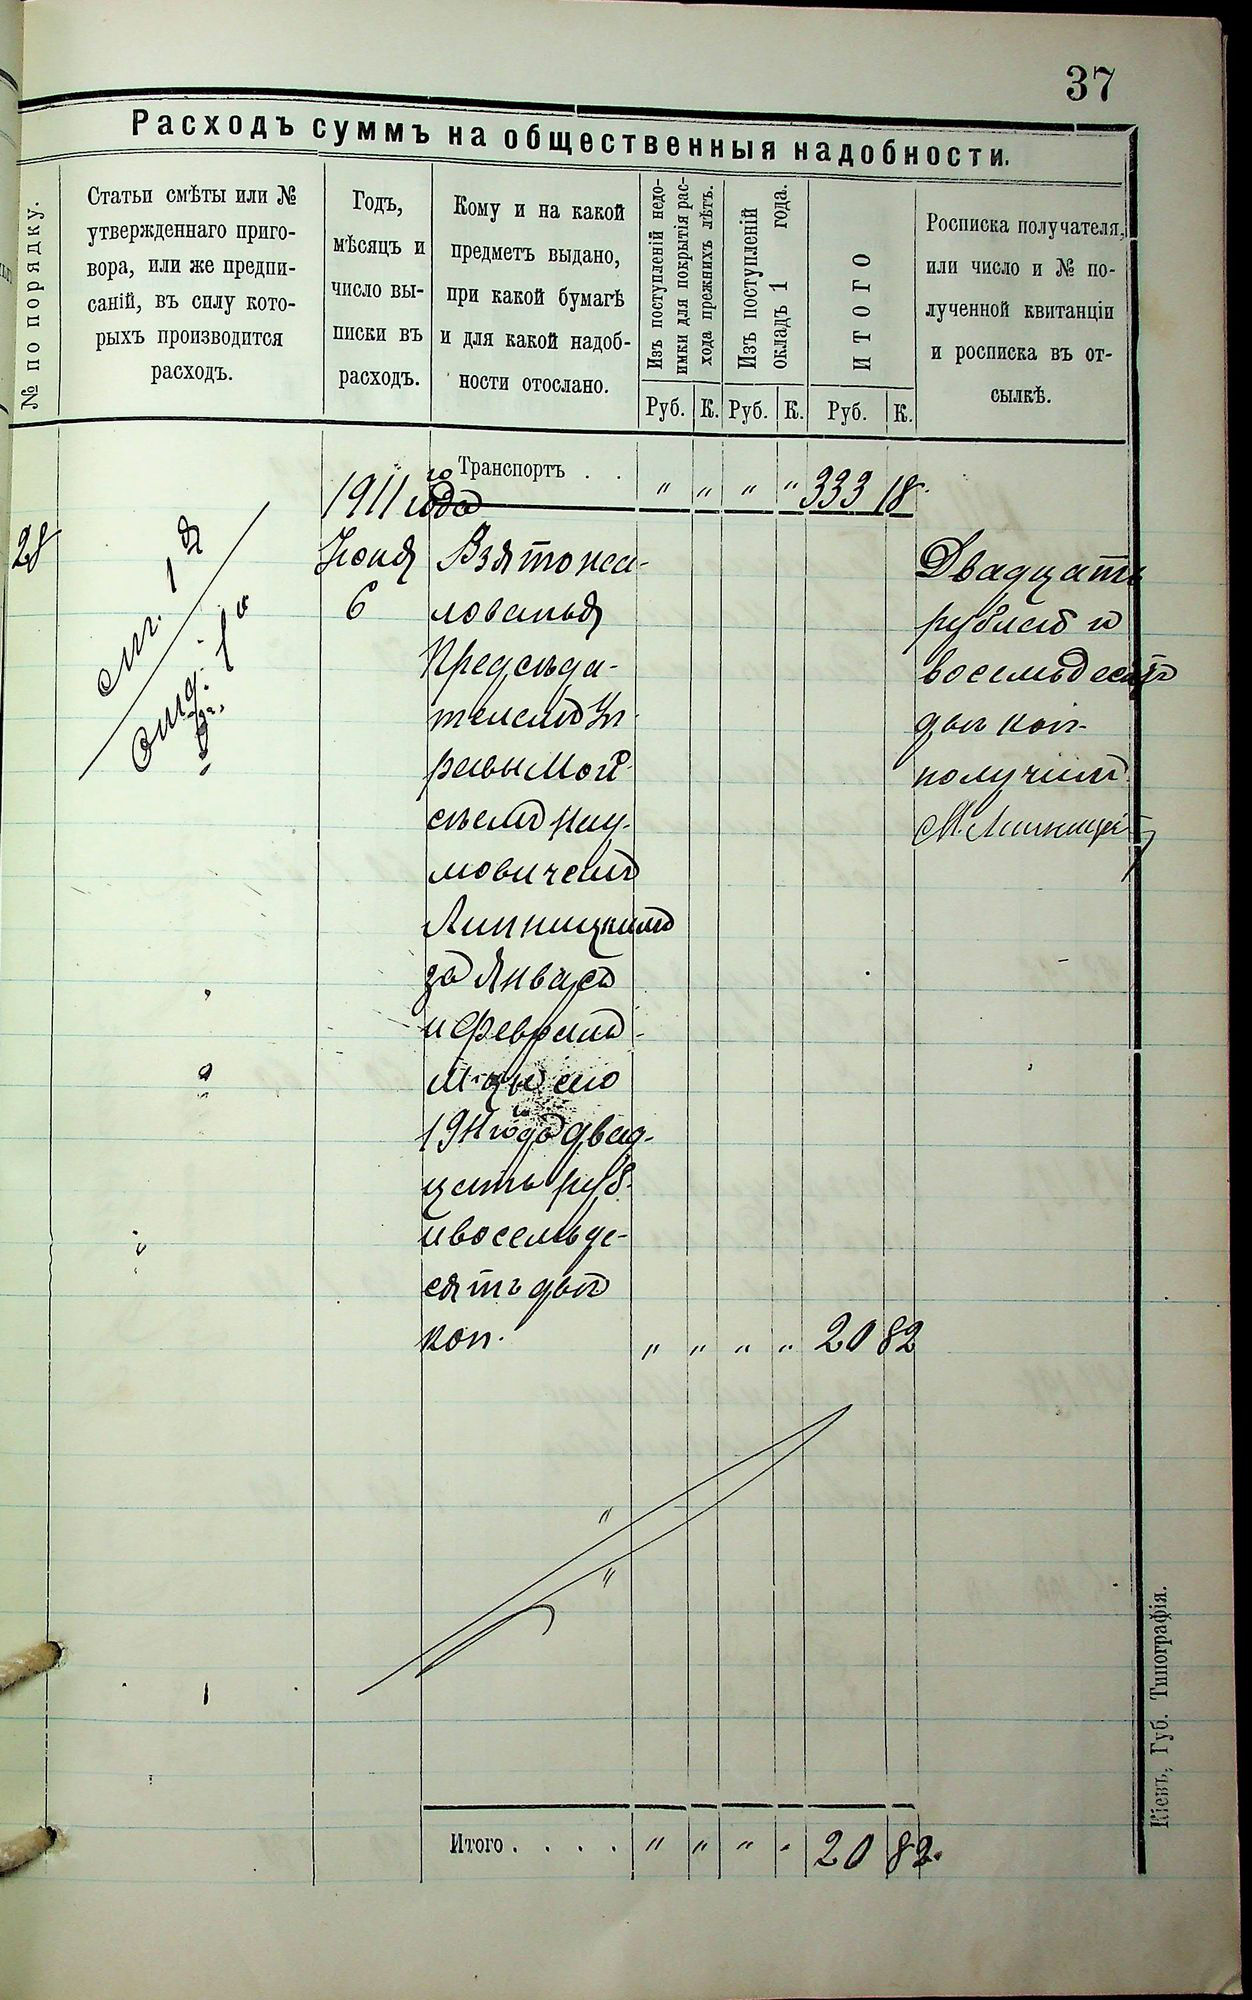 37
Расходъ суммъ на общественныя надобности.
№ по порядку.
Статьи смѣты или №
утвержденнаго приго-
вора, или же предпи-
саній, въ силу кото-
рыхъ производится
расходъ.
Годъ,
мѣсяцъ и
число вы-
писки въ
расходъ.
Кому и на какой
предметъ выдано,
при какой бумагѣ
и для какой надоб-
ности отослано.
Изъ поступленій недо-
имки для покрытія рас-
хода прежнихъ лѣтъ.
Изъ поступленій
окладъ 1 года.
ИТОГО
Росписка получателя,
или число и № по-
лученной квитанціи
и росписка въ от-
сылкѣ.
Руб. К. Руб. К. Руб. К.
Транспортъ . . " " " " 333 18
1911 года
28
Іюня
6
Взято жа-
лованья
Предсѣда-
телемъ Уп
равы Мой-
сѣемъ Нау-
мовичемъ
Липницкимъ
за Январь
и Февраль
м-цы сего
1911 года двад-
цать руб.
и восемьде-
сятъ двѣ
коп. " " " " 20 82
Двадцать
рублей и
восемьдесятъ
двѣ коп.
получилъ
М. Липницкій
Итого . . . . " " " " 20 82.
Кіевъ, Губ. Типографія.